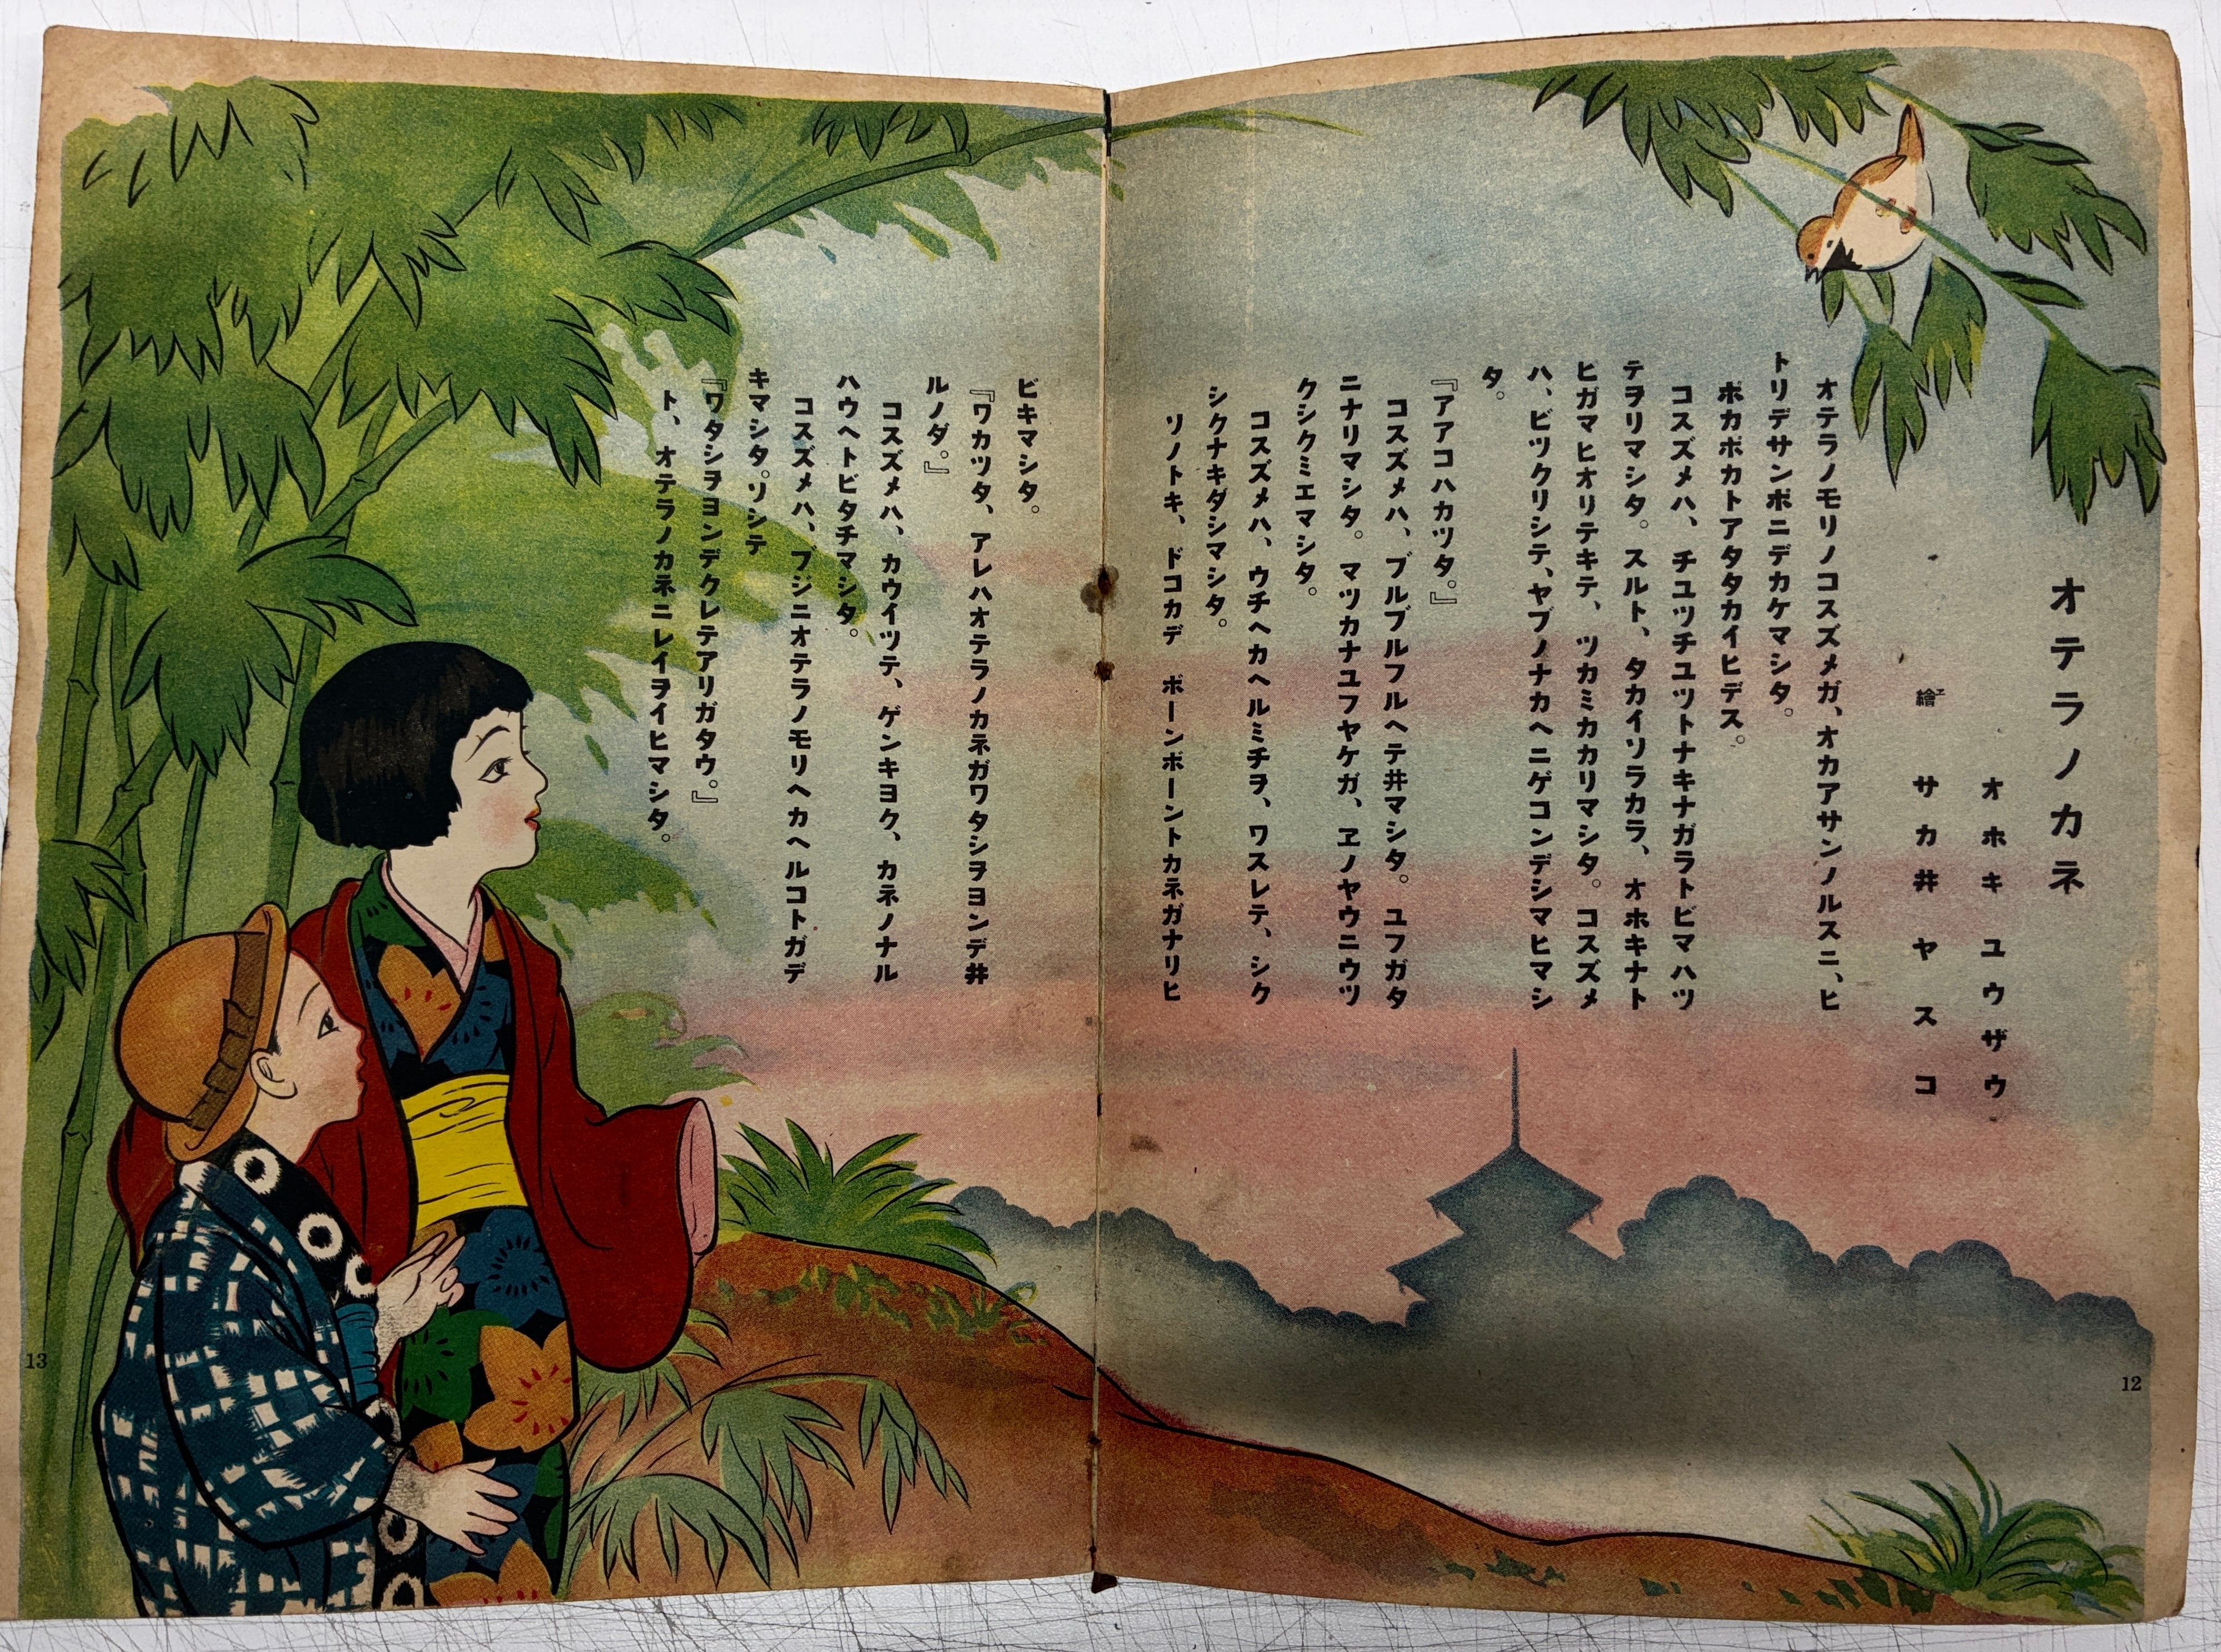 オテラノカネ
オホキユウザウ
繪 サカ井ヤスコ
エ
オテラノモリノコスズメガ、オカアサンノルスニ、ヒ
トリデサンポニデカケマシタ。
ポカポカトアタタカイヒデス。
コスズメハ、チユツチユツトナキナガラトビマハツ
テヲリマシタ。スルト、タカイソラカラ、オホキナト
ビガマヒオリテキテ、ツカミカカリマシタ。コスズメ
ハ、ビツクリシテ、ヤブノナカヘニゲコンデシマヒマシ
タ。
『アアコハカツタ。』
コスズメハ、ブルブルフルヘテ井マシタ。ユフガタ
ニナリマシタ。マツカナユフヤケガ、ヱノヤウニウツ
クシクミエマシタ。
コスズメハ、ウチヘカヘルミチヲ、ワスレテ、シク
シクナキダシマシタ。
ソノトキ、ドコカデ ボーンボーントカネガナリヒ
ビキマシタ。
『ワカツタ、アレハオテラノカネガワタシヲヨンデ井
ルノダ。』
コスズメハ、カウイツテ、ゲンキヨク、カネノナル
ハウヘトビタチマシタ。
コスズメハ、ブジニオテラノモリヘカヘルコトガデ
キマシタ。ソシテ
『ワタシヲヨンデクレテアリガタウ。』
ト、オテラノカネニレイヲイヒマシタ。
12
13